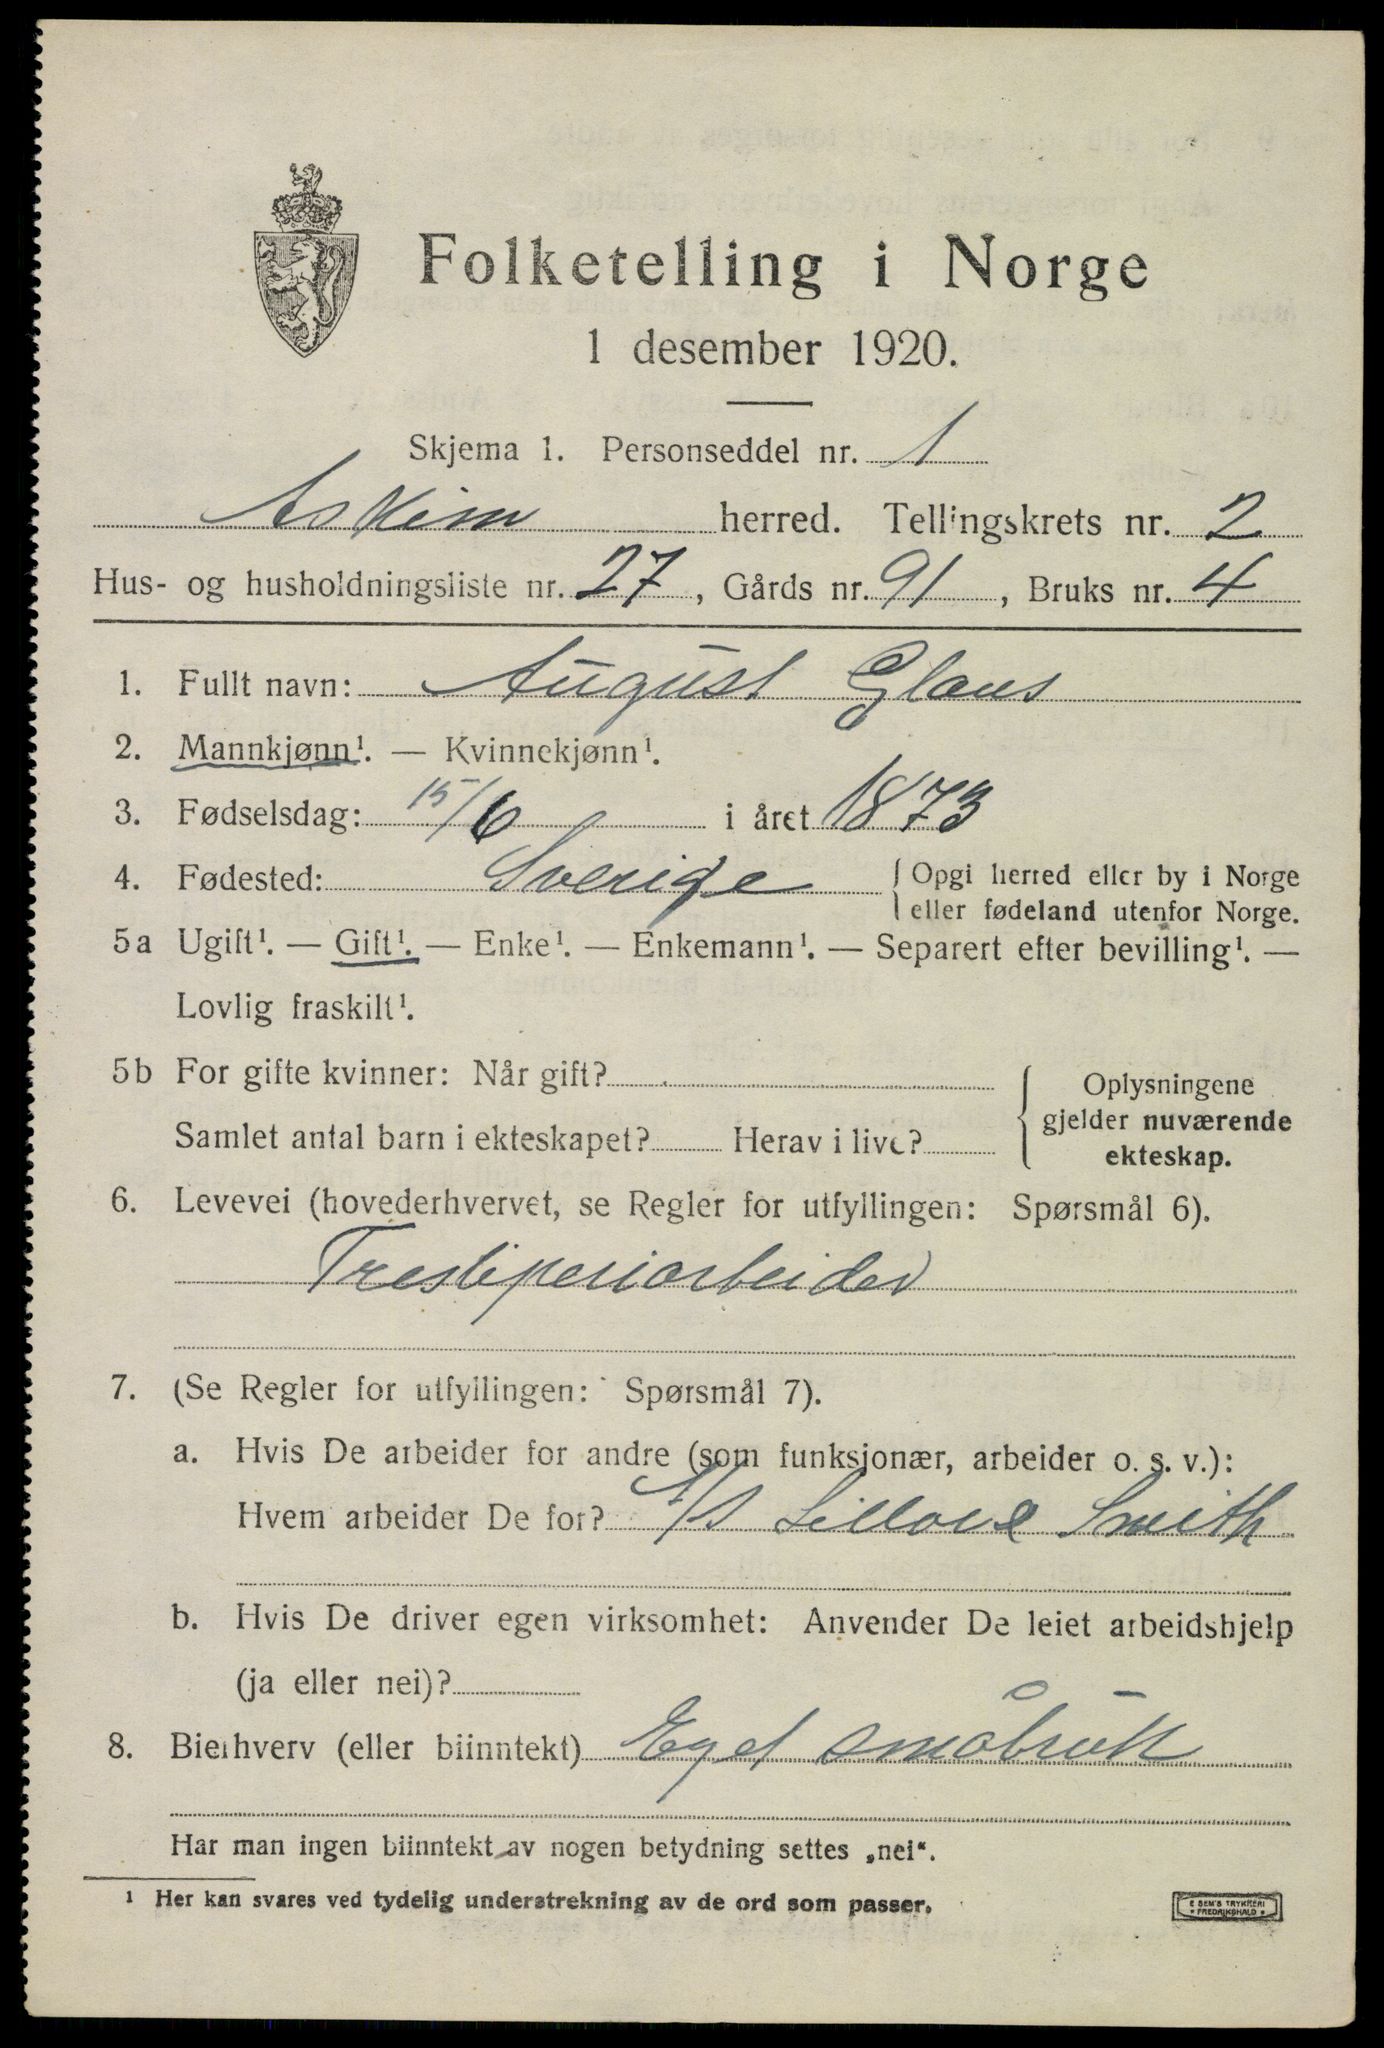 Folketelling i Norge
1 desember 1920.
Skjema 1. Personseddel nr. 1
Askim herred. Tellingskrets nr. 2
Hus- og husholdningsliste nr. 27, Gårds nr. 91, Bruks nr. 4
1. Fullt navn: August Glans
2. Mannkjønn¹. — Kvinnekjønn¹.
3. Fødselsdag: 15/6 i året 1873
4. Fødested: Sverige { Opgi herred eller by i Norge
eller fødeland utenfor Norge.
5a Ugift¹. — Gift¹. — Enke¹. — Enkemann¹. — Separert efter bevilling¹. —
Lovlig fraskilt¹.
5b For gifte kvinner: Når gift?
Samlet antal barn i ekteskapet? Herav i live?
{ Oplysningene
gjelder nuværende
ekteskap.
6. Levevei (hovederhvervet, se Regler for utfyllingen: Spørsmål 6).
Tresliperiarbeider
7. (Se Regler for utfyllingen: Spørsmål 7).
a. Hvis De arbeider for andre (som funksjonær, arbeider o. s. v.):
Hvem arbeider De for? A/S Smith
b. Hvis De driver egen virksomhet: Anvender De leiet arbeidshjelp
(ja eller nei)?
8. Bierhverv (eller biinntekt) Eget småbruk
Har man ingen biinntekt av nogen betydning settes „nei“.
¹ Her kan svares ved tydelig understrekning av de ord som passer.
E SEM'S TRYKKERI
* FREDRIKSHALD *